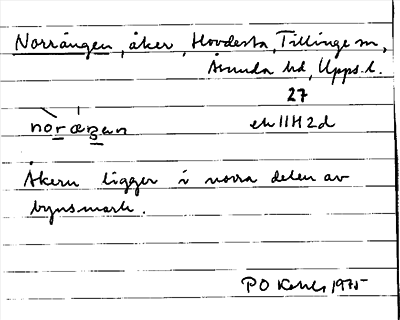 Norrängen, åker, Hovdesta, Tillinge sn,
Åsunda hd, Upps. l.
27
noræŋen
ek 11H2d
Åkern ligger i norra delen av
bynsmark.
P O 1975